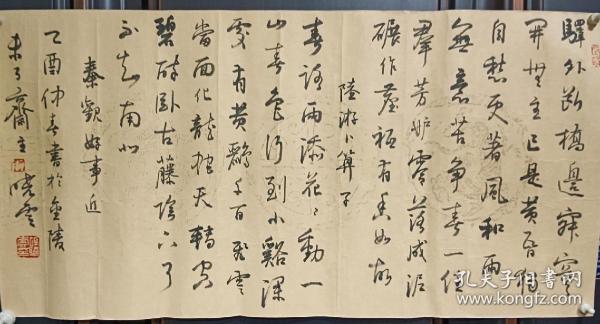 驛外断橋邊寂寞
開無主已是黄昏獨
自愁更著風和雨
無意苦争春一任
羣芳妒零落成泥
碾作塵祇有香如故
陸游卜算子
春路雨添花花動一
山春色行到小谿深
處有黄鸝千百飛雲
當面化龍蛇夭轉空
碧醉卧古藤陰下了
不知南北
秦觀好事近
乙酉仲春書於金陵
未了齋主曉雲
孔夫子旧书网
www.kongfz.com